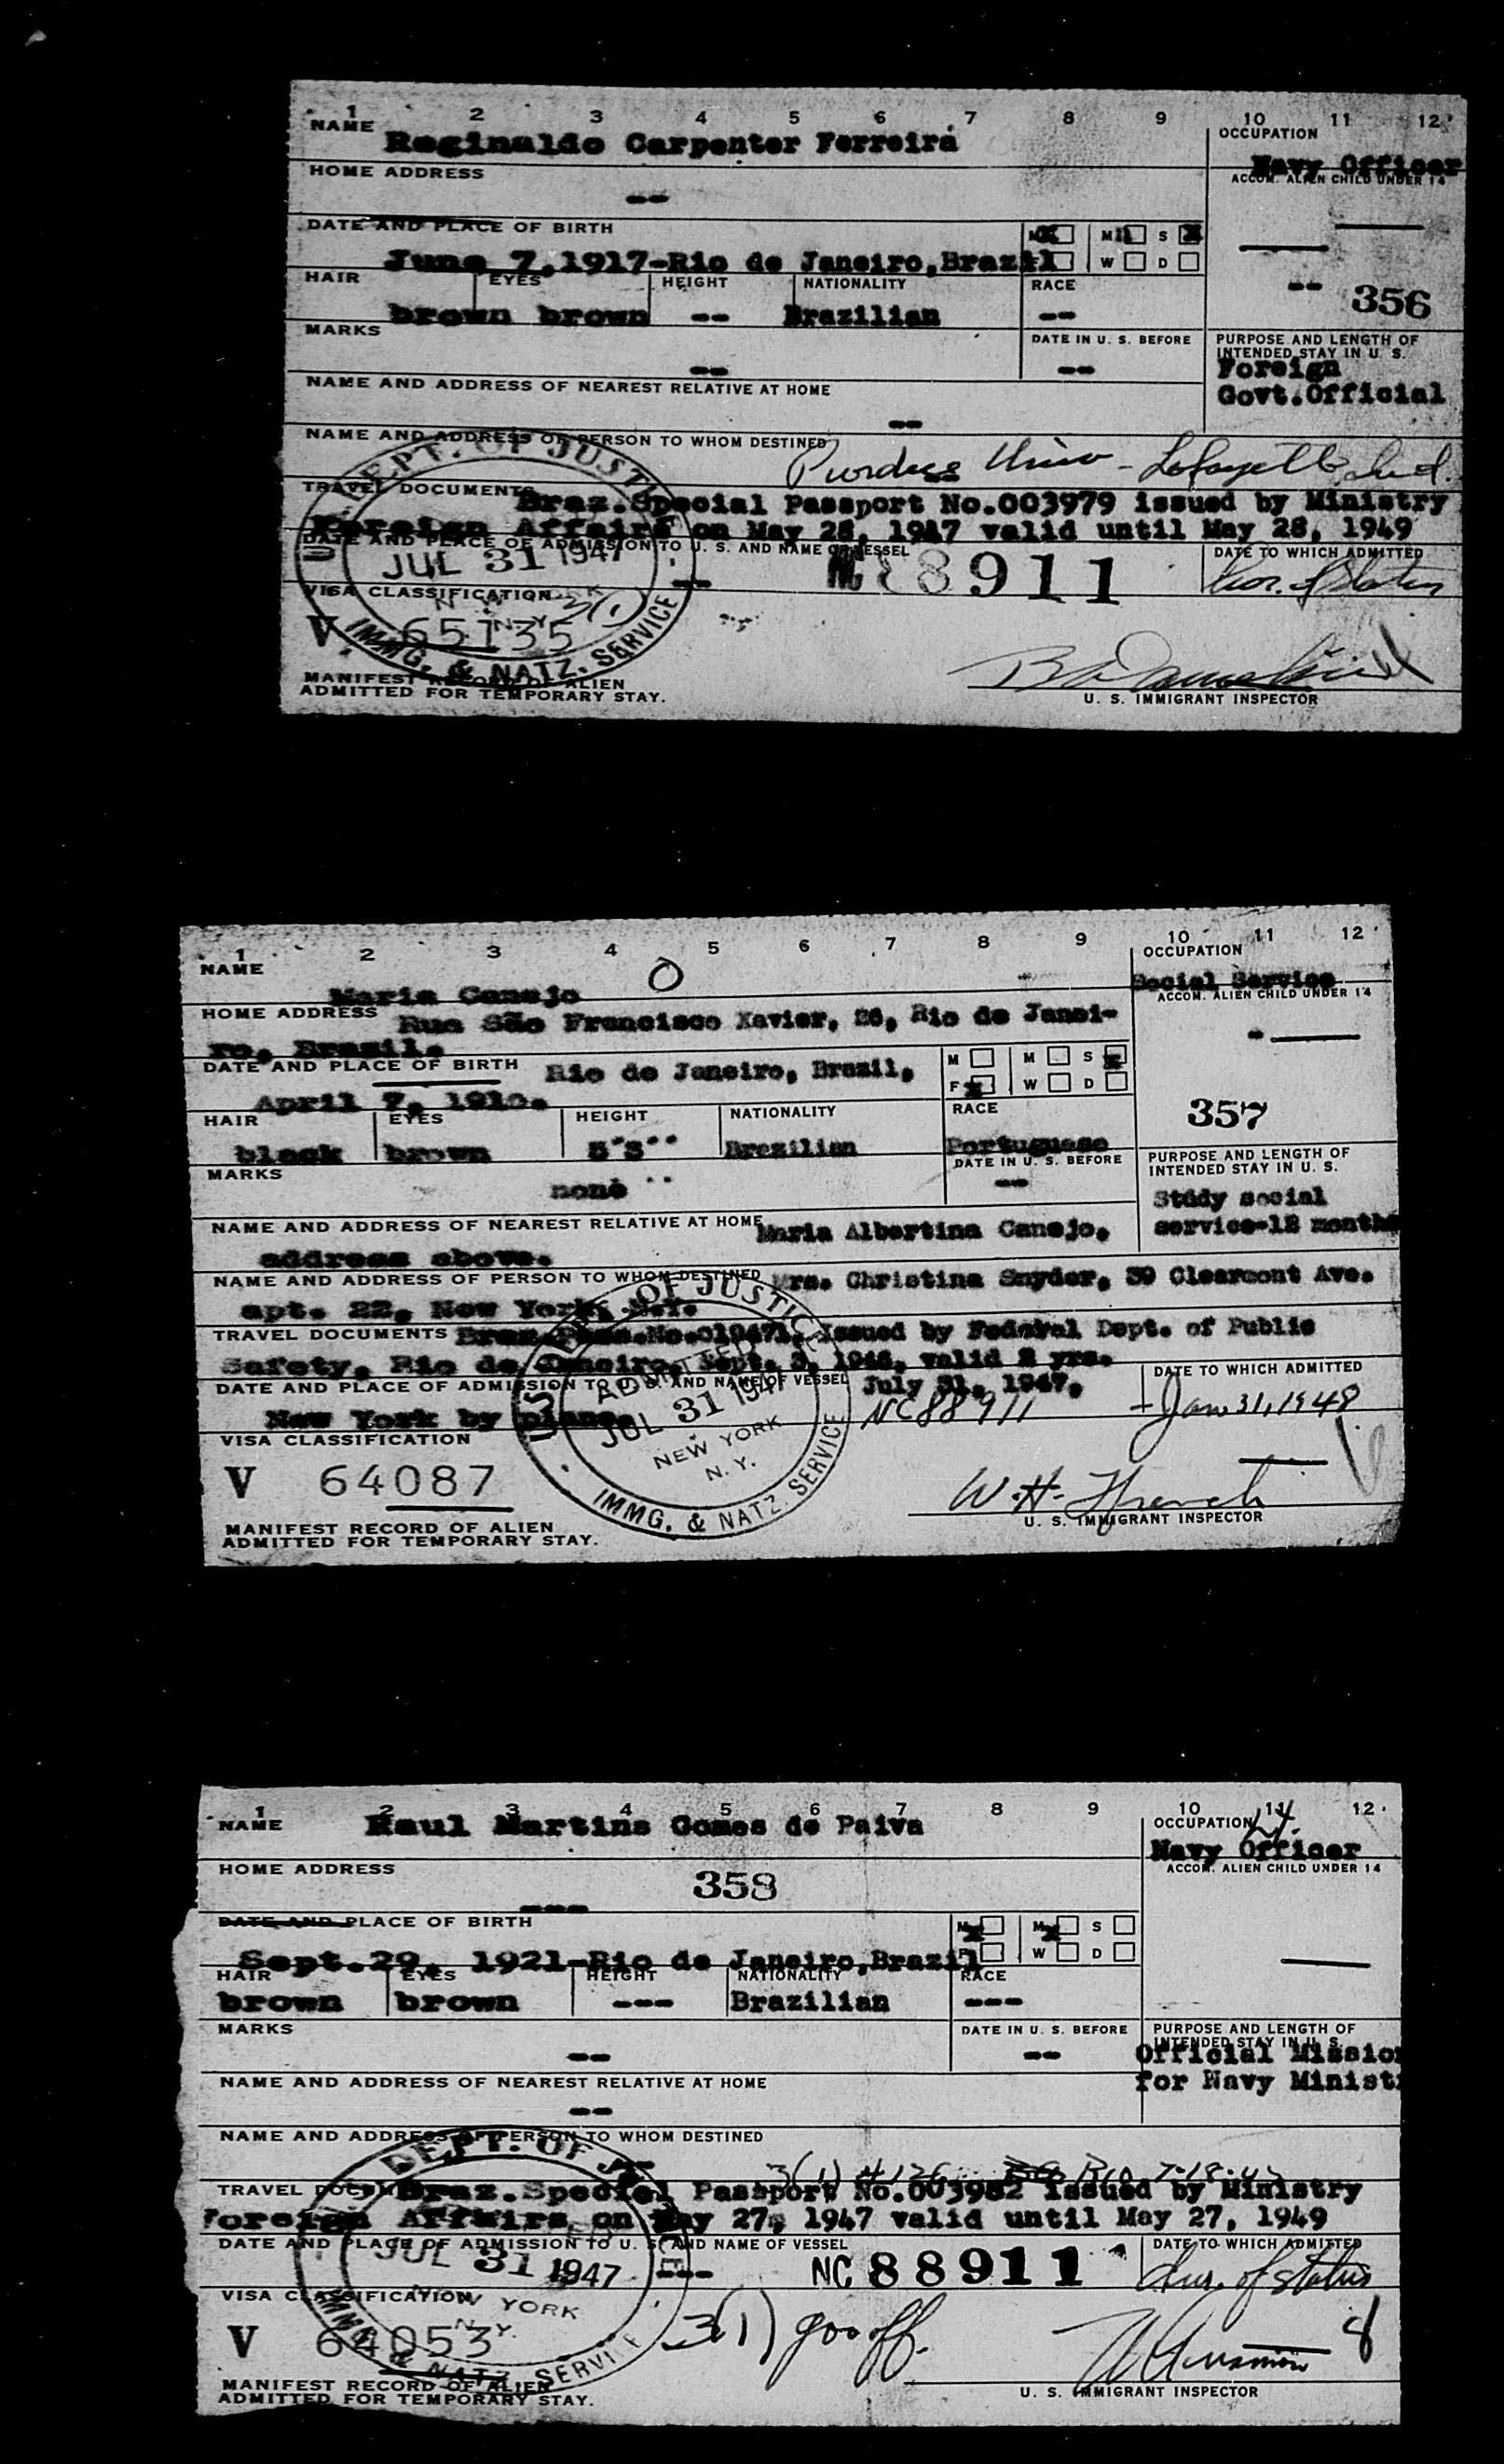 1 2 3 4 5 6 7 8 9 10 11 12
NAME Reginaldo Carpenter Ferreira
OCCUPATION
Navy Officer
HOME ADDRESS
--
ACCOM. ALIEN CHILD UNDER 14
DATE AND PLACE OF BIRTH
M M S X
June 7,1917-Rio de Janeiro,Brazil W D
HAIR EYES HEIGHT NATIONALITY RACE
brown brown -- Brazilian --
-- 356
MARKS
--
DATE IN U. S. BEFORE
--
PURPOSE AND LENGTH OF
INTENDED STAY IN U. S.
Foreign
Govt.Official
NAME AND ADDRESS OF NEAREST RELATIVE AT HOME
--
NAME AND ADDRESS OF PERSON TO WHOM DESTINED
Purdue Univ - Lafayette Ind.
TRAVEL DOCUMENTS Braz.Special Passport No.003979 issued by Ministry
Foreign Affairs on May 28, 1947 valid until May 28, 1949
DATE AND PLACE OF ADMISSION TO U. S. AND NAME OF VESSEL
DATE TO WHICH ADMITTED
DEPT. OF JUST
JUL 31 1947
-- NC 88911
VISA CLASSIFICATION
3(1)
V 65135
IMMG. & NATZ. SERVICE
MANIFEST RECORD OF ALIEN
ADMITTED FOR TEMPORARY STAY.
U. S. IMMIGRANT INSPECTOR
1 2 3 4 5 6 7 8 9 10 11 12
NAME
Maria Canejo
OCCUPATION
Social Service
HOME ADDRESS Rua São Francisco Xavier, 26, Rio de Janei-
ro, Brazil.
ACCOM. ALIEN CHILD UNDER 14
DATE AND PLACE OF BIRTH Rio de Janeiro, Brazil,
April 7, 1910.
M M S X
F X W D
HAIR EYES HEIGHT NATIONALITY RACE
black brown 5'3'' Brazilian Portuguese
357
MARKS
none
DATE IN U. S. BEFORE
--
PURPOSE AND LENGTH OF
INTENDED STAY IN U. S.
Study social
service-12 months
NAME AND ADDRESS OF NEAREST RELATIVE AT HOME Maria Albertina Canejo,
address above.
NAME AND ADDRESS OF PERSON TO WHOM DESTINED Mrs. Christina Snyder, 39 Claremont Ave.
apt. 22, New York, N.Y.
TRAVEL DOCUMENTS Braz.Pass.No.019471, Issued by Federal Dept. of Public
Safety, Rio de Janeiro, Sept. 3, 1946, valid 2 yrs.
DATE AND PLACE OF ADMISSION TO U. S. AND NAME OF VESSEL July 31, 1947,
New York by plane.
NC88911
DATE TO WHICH ADMITTED
Jan 31, 1948
OF JUSTICE
ADMITTED
JUL 31 1947
NEW YORK
N. Y.
IMMG. & NATZ. SERVICE
VISA CLASSIFICATION
V 64087
W. H. French
U. S. IMMIGRANT INSPECTOR
MANIFEST RECORD OF ALIEN
ADMITTED FOR TEMPORARY STAY.
1 2 3 4 5 6 7 8 9 10 11 12
NAME Raul Martins Gomes de Paiva
OCCUPATION
Navy Officer
HOME ADDRESS
---
358
ACCOM. ALIEN CHILD UNDER 14
DATE AND PLACE OF BIRTH
M X M X S
Sept.29, 1921-Rio de Janeiro,Brazil W D
HAIR EYES HEIGHT NATIONALITY RACE
brown brown --- Brazilian ---
MARKS
--
DATE IN U. S. BEFORE
--
PURPOSE AND LENGTH OF
INTENDED STAY IN U. S.
Official Mission
for Navy Minist
NAME AND ADDRESS OF NEAREST RELATIVE AT HOME
--
NAME AND ADDRESS OF PERSON TO WHOM DESTINED
3(1)
TRAVEL Braz.Special Passport No.003982 issued by Ministry
Foreign Affairs on May 27, 1947 valid until May 27, 1949
DATE AND PLACE OF ADMISSION TO U. S. AND NAME OF VESSEL
DATE TO WHICH ADMITTED
Dur. of status
DEPT. OF
JUL 31 1947
YORK
N. Y.
& NATZ. SERVI
--- NC 88911
VISA CLASSIFICATION
V 64053
3(1) gov off.
MANIFEST RECORD OF ALIEN
ADMITTED FOR TEMPORARY STAY.
U. S. IMMIGRANT INSPECTOR